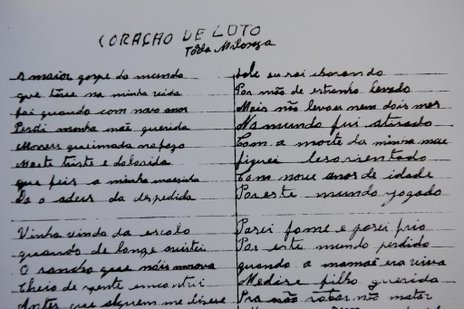 CORAÇÃO DE LUTO
Toda Milonga
O maior gorpe do mundo
que tive na minha vida
foi quando com nove anos
Perdi minha mãe querida
Moreu queimada no fogo
Morte triste e dolorida
que feis a minha maezinha
Da o adeus da despedida
Vinha vindo da escola
quando de longe avistei
O rancho que nóis morava
Cheio de gente encontrei
Antes que alguem me disese
eu sai chorando
Por mão de estranho levado
Mais não levou nem dois mes
No mundo fui atirado
Com a morte da minha mae
fiquei desorientado
Com nove anos de idade
Por este mundo jogado
Pasei fome e pasei frio
Por este mundo perdido
quando a mamãe era viva
Me dise filho querido
Pra não robar não matar